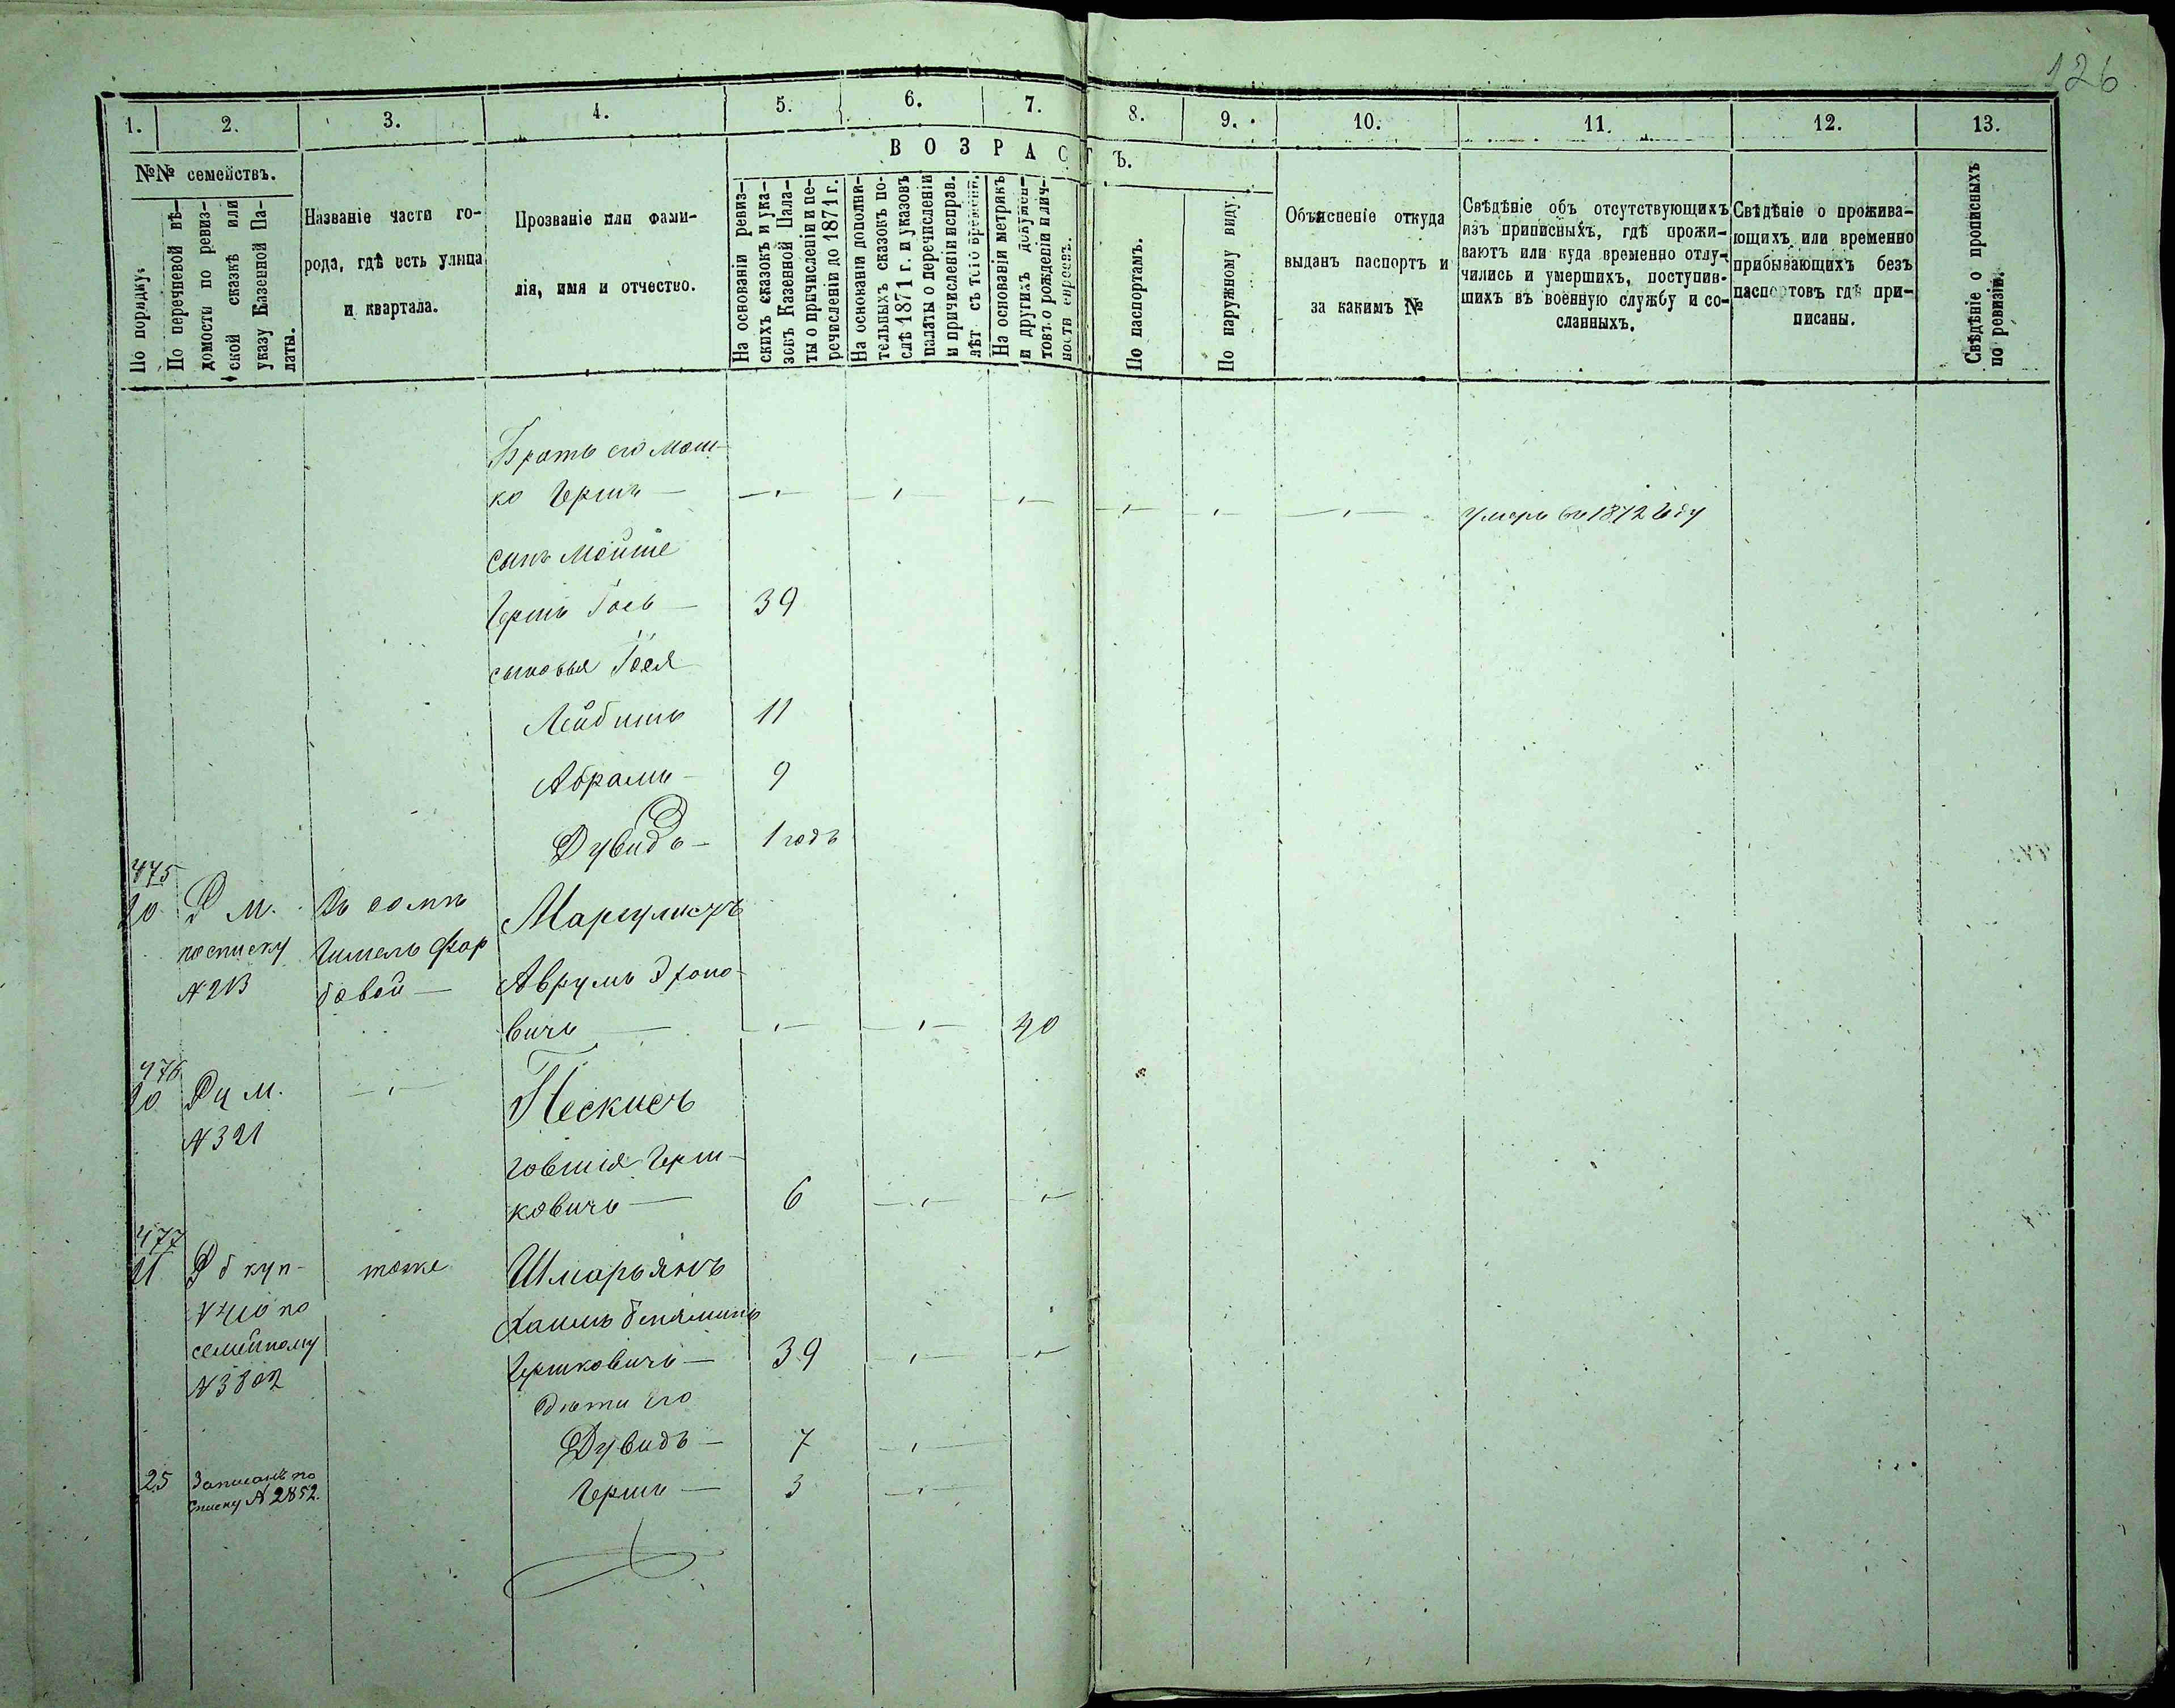 126
1. 2. 3. 4. 5. 6. 7. 8. 9. 10. 11. 12. 13.
В О З Р А С Т Ъ.
№№ семействъ.
По порядку.
По перечневой вѣ-
домости по ревиз-
ской сказкѣ или
указу Казенной Па-
латы.
Названіе части го-
рода, гдѣ есть улица
и квартала.
Прозваніе или фами-
лія, имя и отчество.
На основаніи ревиз-
скихъ сказокъ и ука-
зовъ Казенной Пала-
ты о причисленіи и пе-
речисленіи до 1871 г.
На основаніи дополни-
тельныхъ сказокъ по-
слѣ 1871 г. и указовъ
палаты о перечисленіи
и причисленіи исправ.
лѣт съ того времени.
На основаніи метрикъ
и другихъ докумен-
товъ о рожденіи и лич-
ности евреевъ.
По паспортамъ.
По наружному виду.
Объясненіе откуда
выданъ паспортъ и
за какимъ №
Свѣдѣніе объ отсутствующихъ
изъ приписныхъ, гдѣ прожи-
ваютъ или куда временно отлу-
чились и умершихъ, поступив-
шихъ въ военную службу и со-
сланныхъ.
Свѣдѣніе о прожива-
ющихъ или временно
прибывающихъ безъ
паспортовъ гдѣ при-
писаны.
Свѣдѣніе о прописныхъ
по ревизіи.
Братъ его Мош-
ко Гершъ — умеръ въ 1872 году
сынъ Мойше
Гершъ Іось — 39
сыновья Іося
Лейбишъ 11
Абрамъ — 9
Дувидъ — 1 годъ
475
20 Д м. Въ домѣ Маргулисъ
по списку
№ 213 бовой — Аврумъ
вичъ — 40
476
20 Дц м. Пескисъ
№ 321
Говшія Герш-
ковичъ — 6
477
21 Дб куп- тоже Шмарьянъ
№ 410 по Хаимъ Беніаминъ
семейному Гершковичъ — 39
№ 3802 дѣти его
Дувидъ — 7
25 Записанъ по Гершъ — 3
списку № 2852.